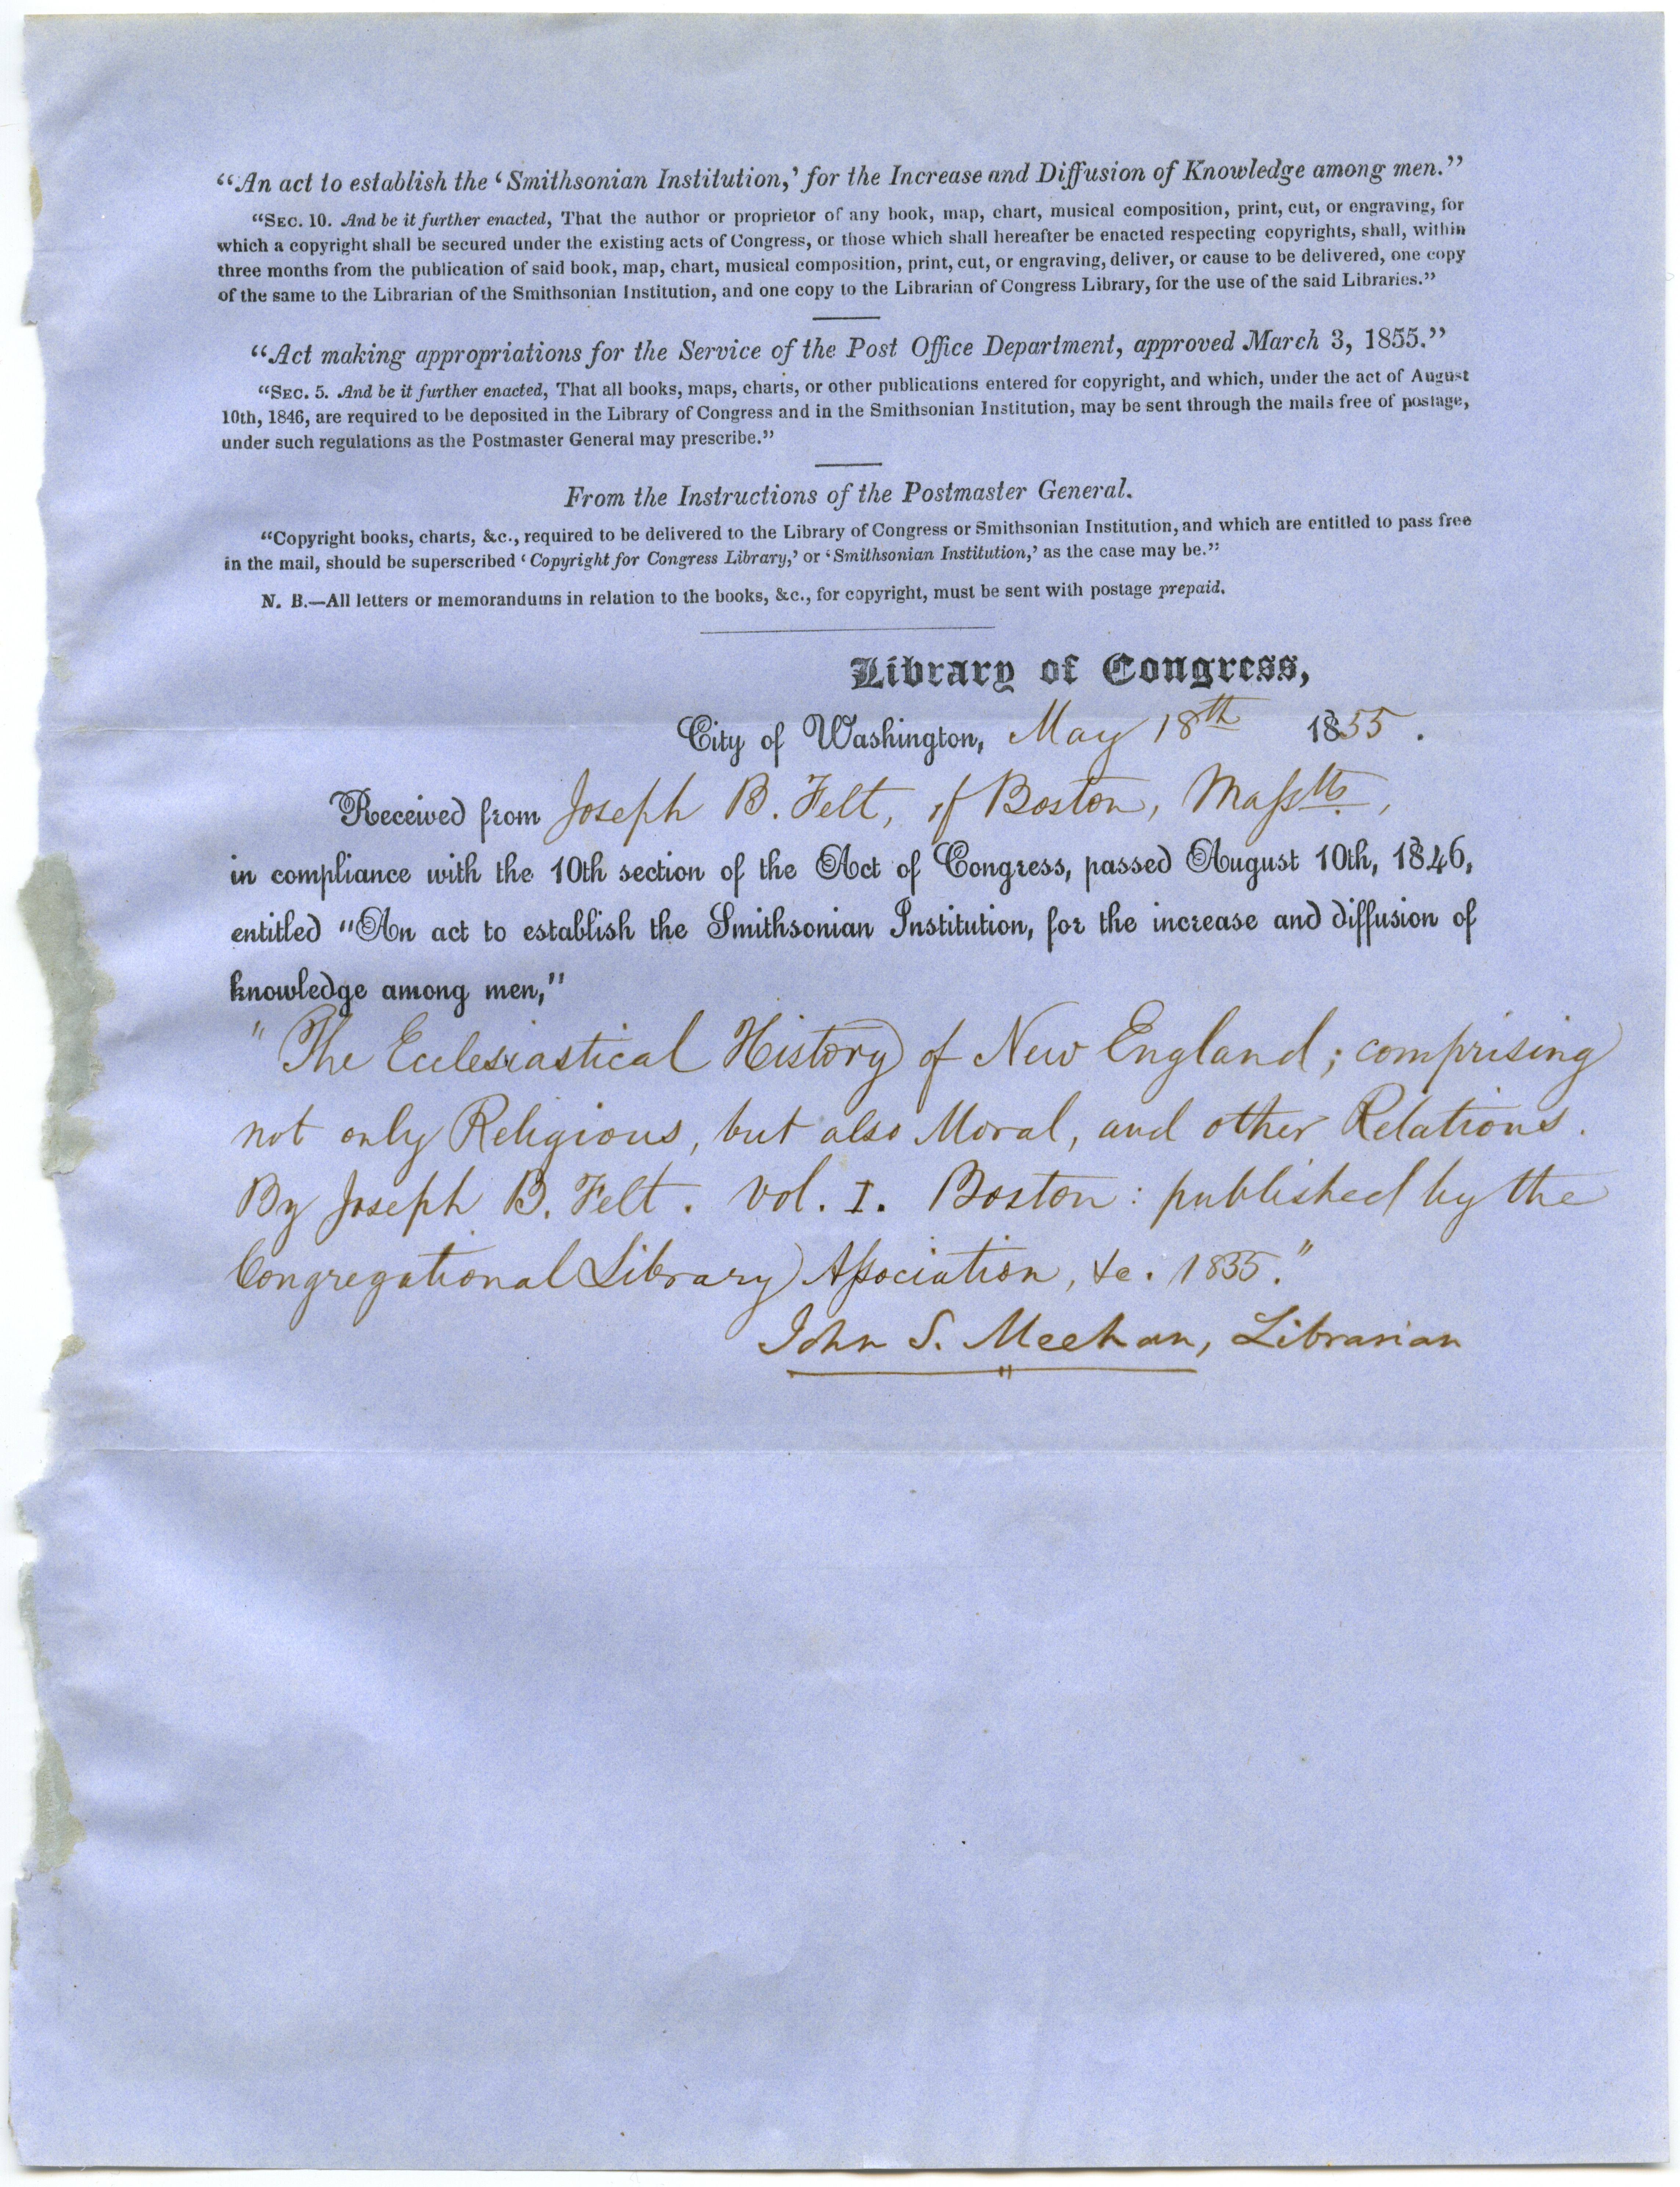 “An act to establish the ‘Smithsonian Institution,’ for the Increase and Diffusion of Knowledge among men.”
“SEC. 10. And be it further enacted, That the author or proprietor of any book, map, chart, musical composition, print, cut, or engraving, for
which a copyright shall be secured under the existing acts of Congress, or those which shall hereafter be enacted respecting copyrights, shall, within
three months from the publication of said book, map, chart, musical composition, print, cut, or engraving, deliver, or cause to be delivered, one copy
of the same to the Librarian of the Smithsonian Institution, and one copy to the Librarian of Congress Library, for the use of the said Libraries.”
“Act making appropriations for the Service of the Post Office Department, approved March 3, 1855.”
“SEC. 5. And be it further enacted, That all books, maps, charts, or other publications entered for copyright, and which, under the act of August
10th, 1846, are required to be deposited in the Library of Congress and in the Smithsonian Institution, may be sent through the mails free of postage,
under such regulations as the Postmaster General may prescribe.”
From the Instructions of the Postmaster General.
“Copyright books, charts, &c., required to be delivered to the Library of Congress or Smithsonian Institution, and which are entitled to pass free
in the mail, should be superscribed ‘Copyright for Congress Library,’ or ‘Smithsonian Institution,’ as the case may be.”
N. B.—All letters or memorandums in relation to the books, &c., for copyright, must be sent with postage prepaid.
Library of Congress,
City of Washington, May 18th 1855.
Received from Joseph B. Felt, of Boston, Masstts,
in compliance with the 10th section of the Act of Congress, passed August 10th, 1846,
entitled “An act to establish the Smithsonian Institution, for the increase and diffusion of
knowledge among men,”
"The Ecclesiastical History of New England; comprising
not only Religious, but also Moral, and other Relations.
By Joseph B. Felt. Vol. I. Boston: published by the
Congregational Library Association, &c. 1855."
John S. Meehan, Librarian